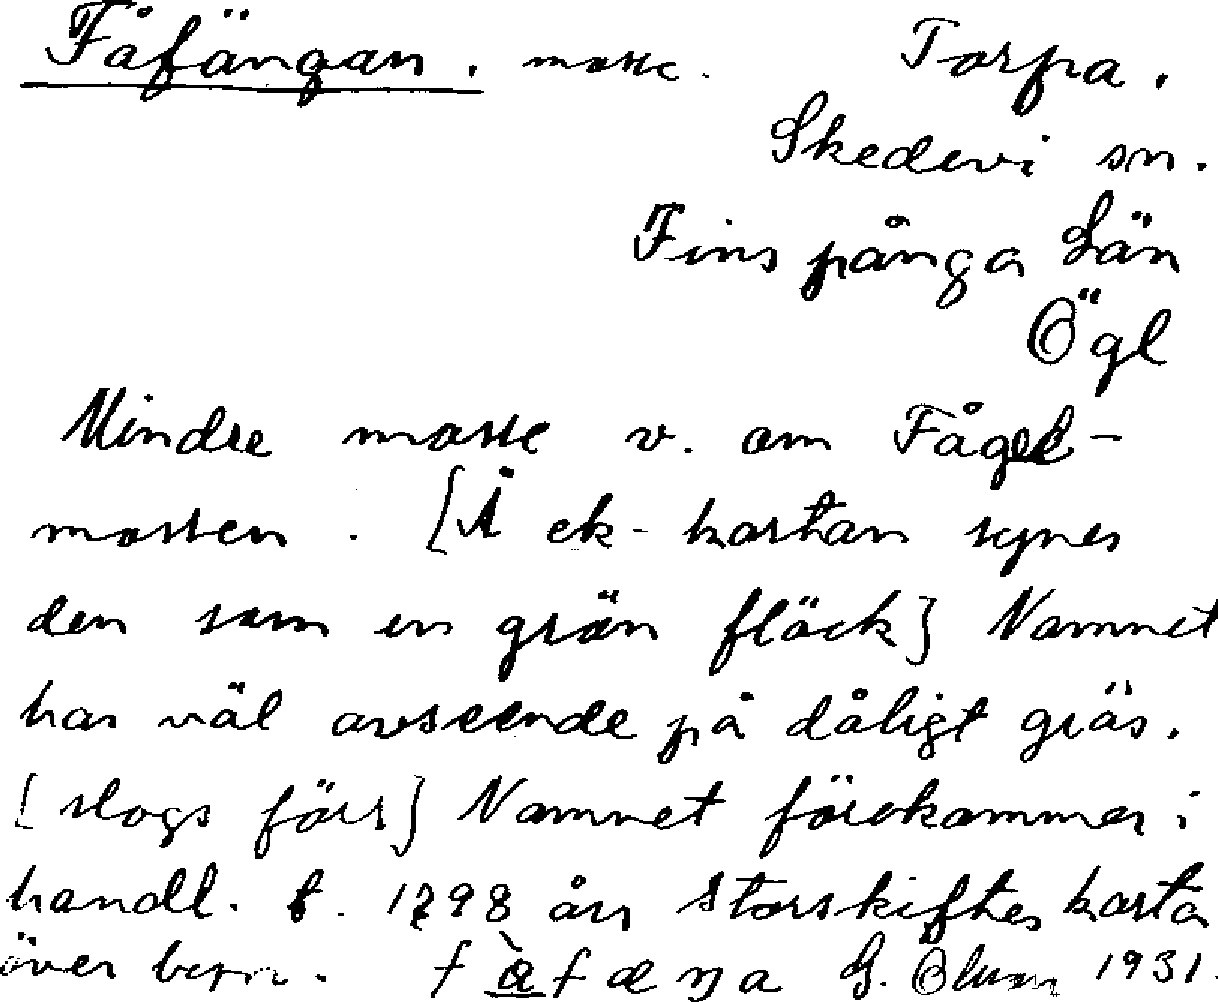 Fåfängan. mosse. Torpa.
Skedevi sn.
Finspånga Län
Ögl
Mindre mosse v. om Fågel-
mossen. [Å ek-kartan synes
den som en grön fläck] Namnet
har väl avseende på dåligt gräs.
[slogs förr] Namnet förekommer i
handl. t. 1798 års storskiftes karta
över byn. G. Ölum 1931.